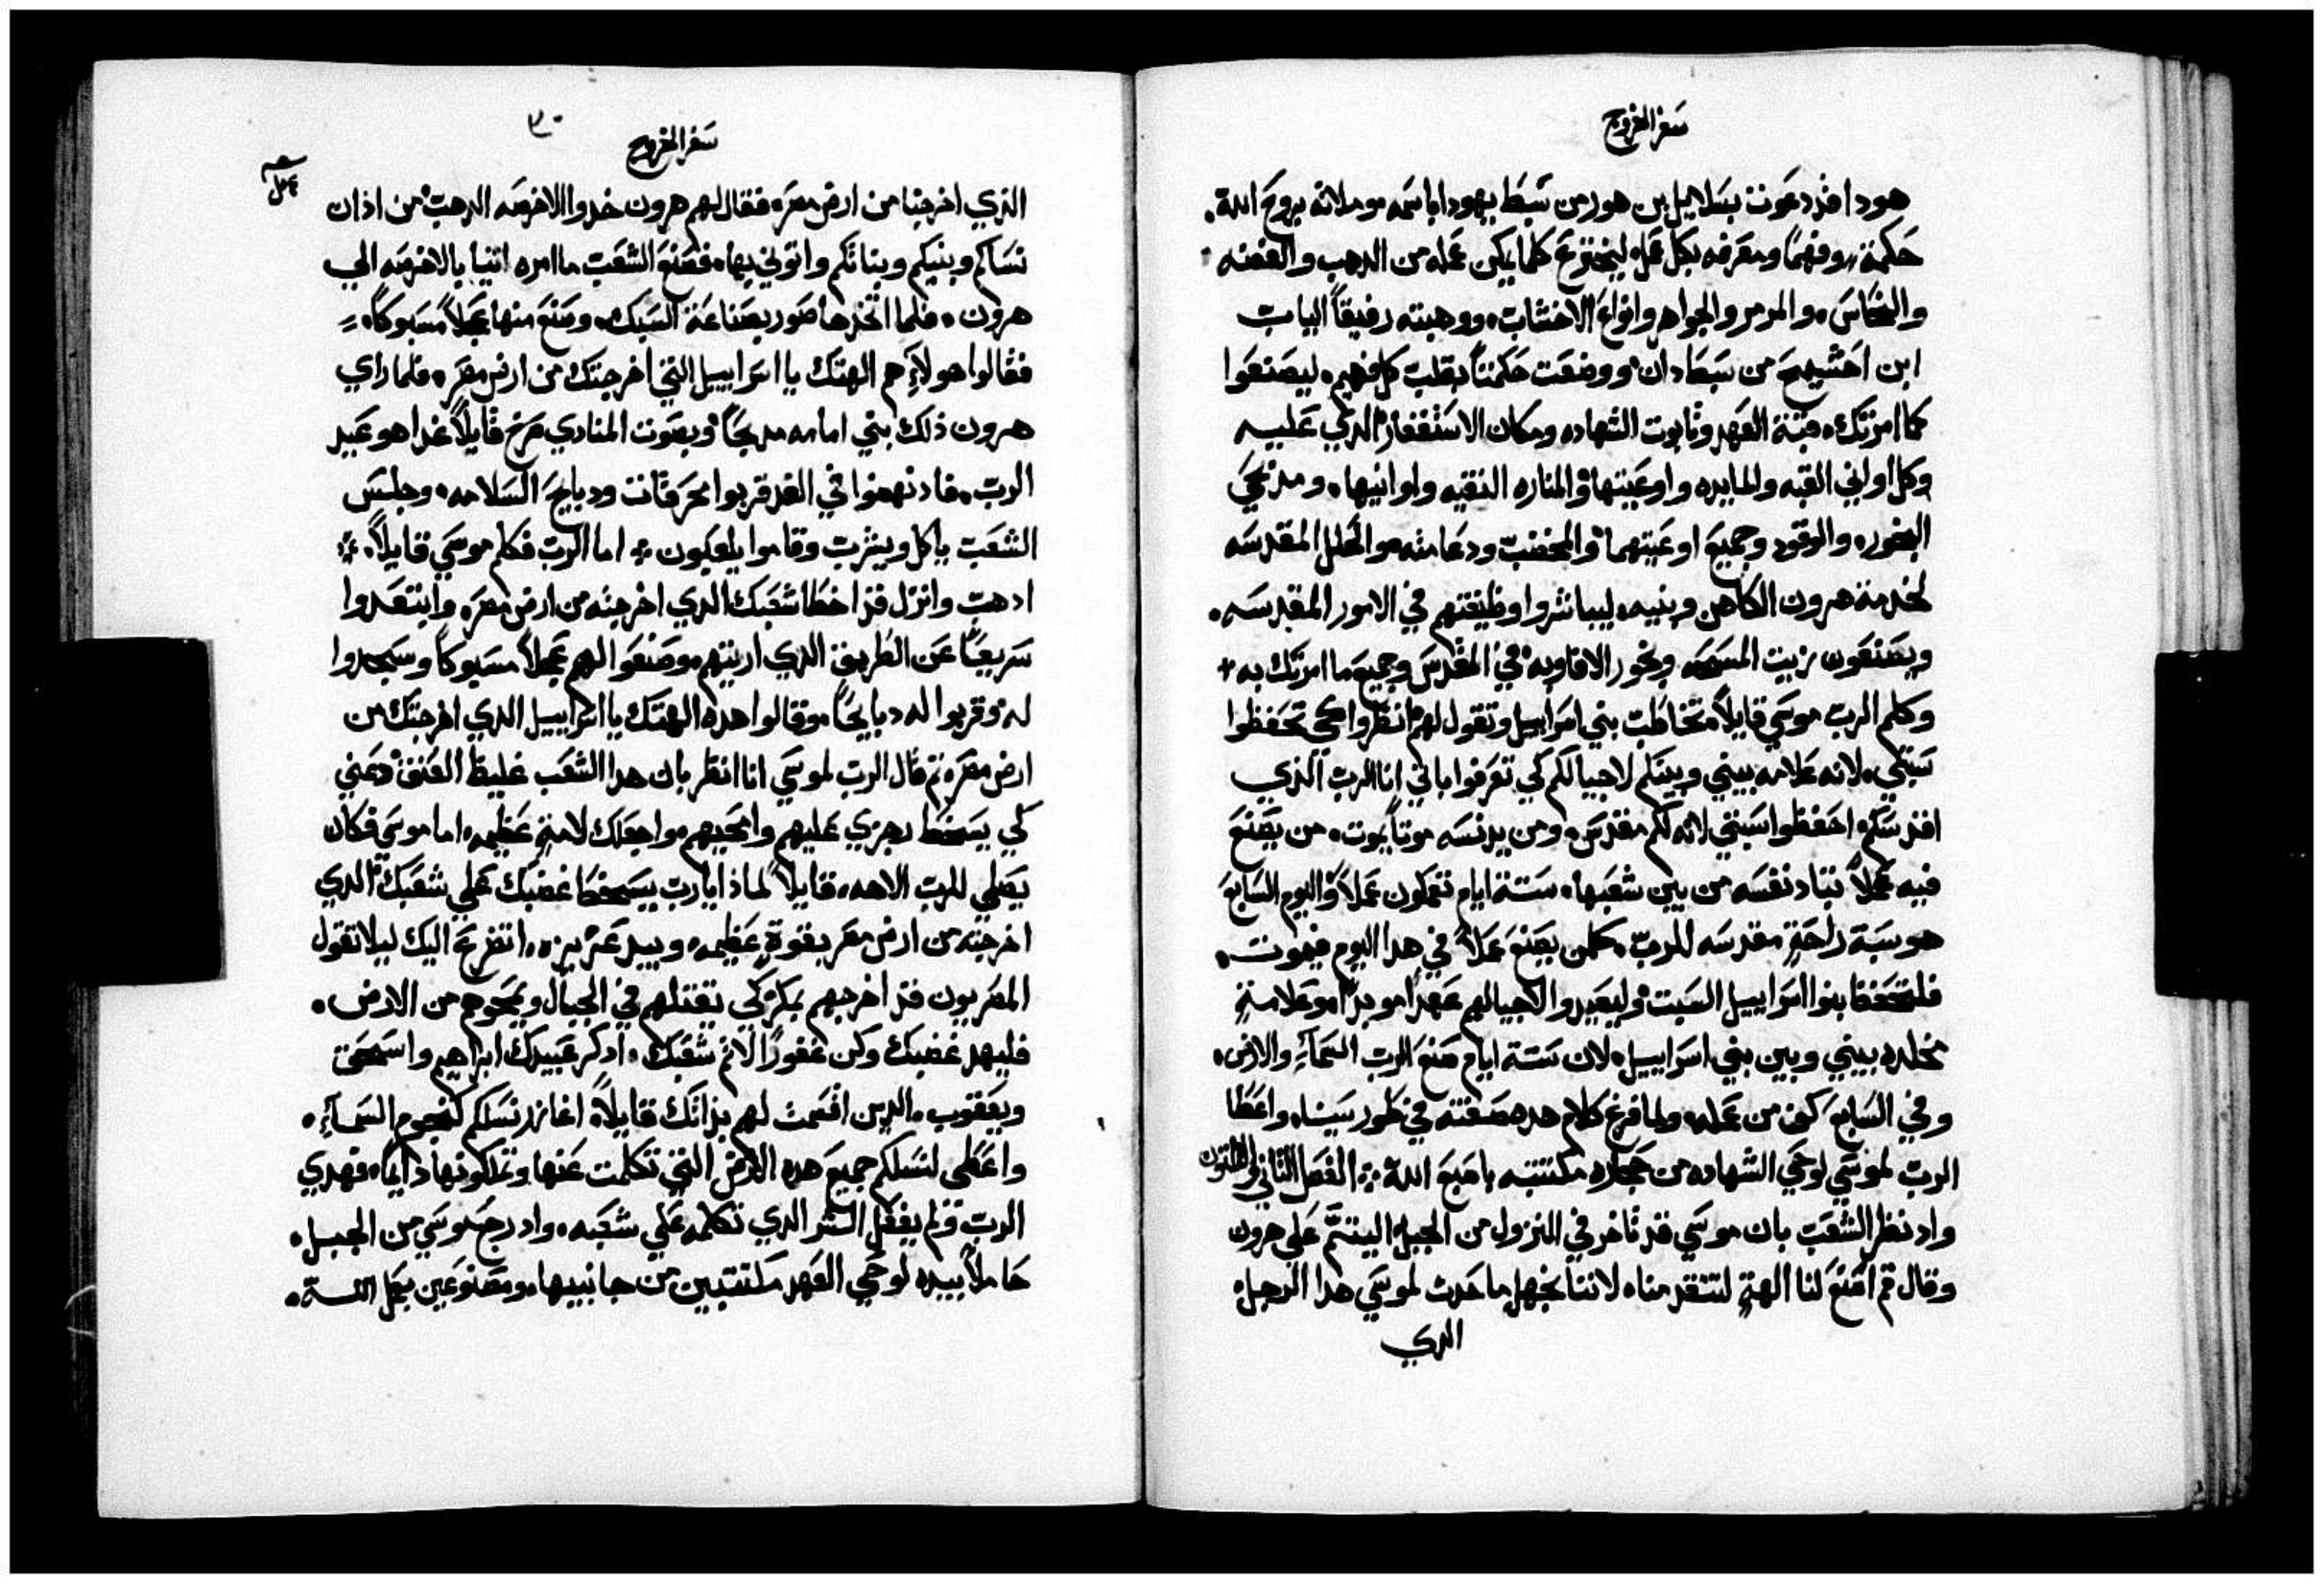 سفر الخروج
هودا قد دعوت بسلاييل بن هور من سبط يهودا باسمه وملانه بروح الله.
حكمة وفهما ومعرفه بكل عمل ليخترع كلما يمكن عمله من الدهب والفضه
والنحاس. والمرمر والجواهر وانواع الاخشاب. ووهبته رفيقاً الياب
ابن احشيمخ من سبط دان ووضعت حكمتاً بقلب كل فهيم. ليصنعوا
كما امرتك. قبة العهد وتابوت الشهاده ومكان الاستغفار الدي عليه
وكل اواني القبه والمايده واوعيتها والمناره النقيه واوانيها. ومدبحي
البخور. والوقود وجميع اوعيتهما والمخضب ودعامته والحلل المقدسه
لخدمة هرون الكاهن وبنيه. ليباشروا وظيفتهم في الامور المقدسه.
ويصنعون زيت المسحه وبخور الافاويه في المقدس وجميع ما امرتك به +
وكلم الرب موسي قايلاً تخاطب بني اسراييل وتقول لهم انظروا كي تحفظوا
سبتي. لانه علامه بيني وبينكم لاجيالكم كي تعرفوا باني انا الرب الذي
اقدسكم. احفظوا سبتي لانه لكم مقدس. ومن يدنسه موتاً يموت. من يصنع
فيه عملاً تباد نفسه من بين شعبها. ستة ايام تعملون عملاً واليوم السابع
هو سبة راحةٍ مقدسه للرب. كلمن يصنع عملاً في هدا اليوم فيموت.
فلتحفظ بنوا اسراييل السبت وليعيدوا لاجيالهم عهداً موبداً وعلامةٍ
مخلده بيني وبين بني اسراييل. لان ستة ايام صنع الرب السمآءِ والارض.
وفي السابع كف من عمله. ولما فرغ كلام هده صفته في طور سينا. واعطا
الرب لموسي لوحي الشهاده من حجاره مكتتبه باصبع الله ܀ الفصل التاني والتلتون
واد نظر الشعب بان موسي قد تاخر في النزول من الجبل اليتم علي هرون
وقال قم اصنع لنا الهةٍ لتتقدمنا. لاننا نجهل ما حدث لموسي هدا الرجل
الدي
سفر الخروج
٣٠
الذي اخرجنا من ارض مصر. فقال لهم هرون خدوا الاخرصه الدهب من اذان
نساكم وبنيكم وبناتكم واتوني بها. فصنع الشعب ما امره اتنيا بالاخرصه الي
هرون. فلما اتخدها صور بصناعة السبك. وصنع منها عجلاً مسبوكاً.
فقالوا هولآءِ هم الهتك يا اسراييل التي اخرجتك من ارض مصر. فلما راي
هرون ذلك بني امامه مدبحاً وبصوت المنادي صرخ قايلاً غدا هو عيد
الرب. فاد نهضوا في الغد قربوا محرقانت ودبايح السلامه. وجلس
الشعب ياكل ويشرب وقاموا يلعبون ܀ اما الرب فكلم موسي قايلاً.
ادهب وانزل قد اخطا شعبك الدي اخرجته من ارض مصر. وابتعدوا
سريعاً عن الطريق الدي اريتهم وصنعوا لهم عجلاً مسبوكاً وسجدوا
له وقربوا له دبايحاً وقالوا هده الهتك يا اسراييل الدي اخرجتك من
ارض مصر. تم قال الرب لموسي انا انظر بان هدا الشعب غليظ العنق دعني
كي يسخط رجزي عليهم وامحيهم واجعلك لامةٍ عظيمه. اما موسي فكان
يصلي للرب الاهه. قايلاً لماذا يارب يسخط غضبك علي شعبك الدي
اخرجته من ارض مصر بقوةٍ عظيمه. وبيد عزيزه. اتضرع اليك ليلا تقول
المصريون قد اخرجهم بمكر كي يقتلهم في الجبال ويمحوهم من الارض.
فليهد غضبك وكن غفوراً لاثم شعبك. ادكر عبيدك ابراهيم واسحق
ويعقوب. الدين اقسمت لهم بذاتك قايلاً. انما ازيد نسلكم كنجوم السمآءِ.
واعطي لنسلكم جميع هده الارض التي تكلمت عنها وتملكونها دايماً. فهدي
الرب ولم يفعل الشر الدي تكلمه علي شعبه. واد رجع موسي من الجبل.
حاملاً بيده لوحي العهد مكتتبين من جانبيها. ومصنوعين بعمل الله.